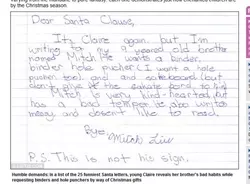 by the Christmas season.
Dear Santa Clause,
It's Claire again but I'm
writing to my 9 yeared old brother
named Mitch. He wants a binder,
binder hole puncher (I want a hole
pusher too) and and skateboard (but
don't give it the skate to
he is very but
has a bad temper he also writes
messy and doesn't like to read.
Bye
Mitch Liu
P.S. This is not his sign.
Humble demands: In a list of the 25 funniest Santa letters, young Claire reveals her brother's bad habits while
requesting binders and hole punchers by way of Christmas gifts